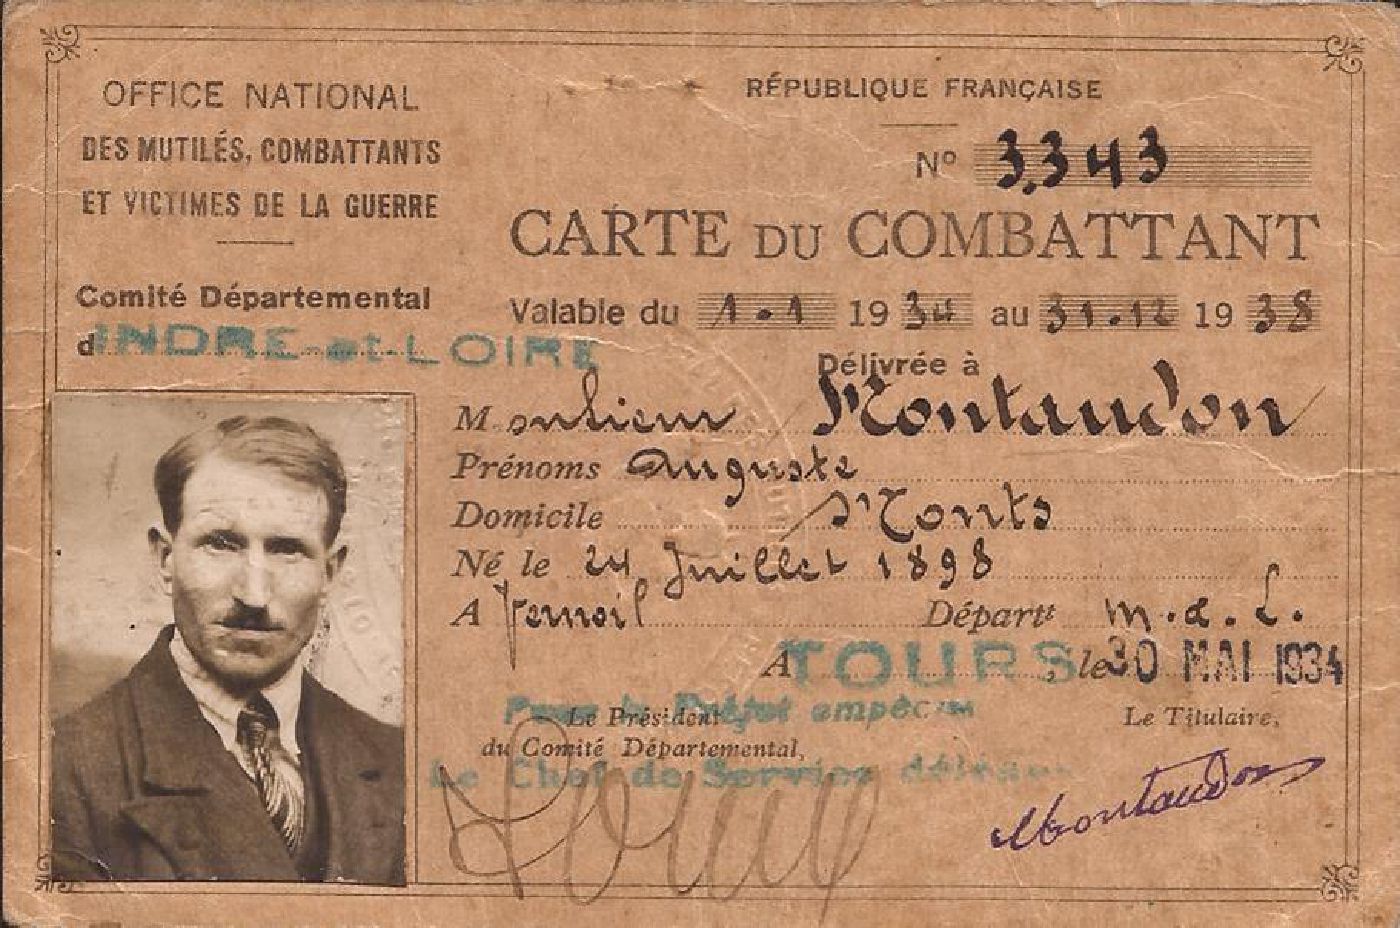 OFFICE NATIONAL
DES MUTILÉS, COMBATTANTS
ET VICTIMES DE LA GUERRE
Comité Départemental
d'INDRE-et-LOIRE
RÉPUBLIQUE FRANÇAISE
Nº 3.343
CARTE DU COMBATTANT
Valable du 1.1 1934 au 31.12 1938
Délivrée à
Monsieur Montaudon
Prénoms Auguste
Domicile Monts
Né le 24 Juillet 1898
A Vernoil Départt m.&.L.
A TOURS, le 30 MAI 1934
Pour le Préfet empêché
Le Président
du Comité Départemental,
Le Chef de Service délégué
Le Titulaire,
Montaudon